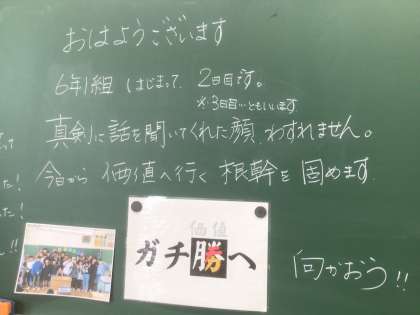 おはようございます
6年1組 はじまって、2日目です。
※3日目…ともいいます
真剣に話を聞いてくれた顔、わすれません。
今日から 価値へ行く 根幹を 固めます。
価値
ガチ勝へ
向かおう!!
って
た!
た!
!!